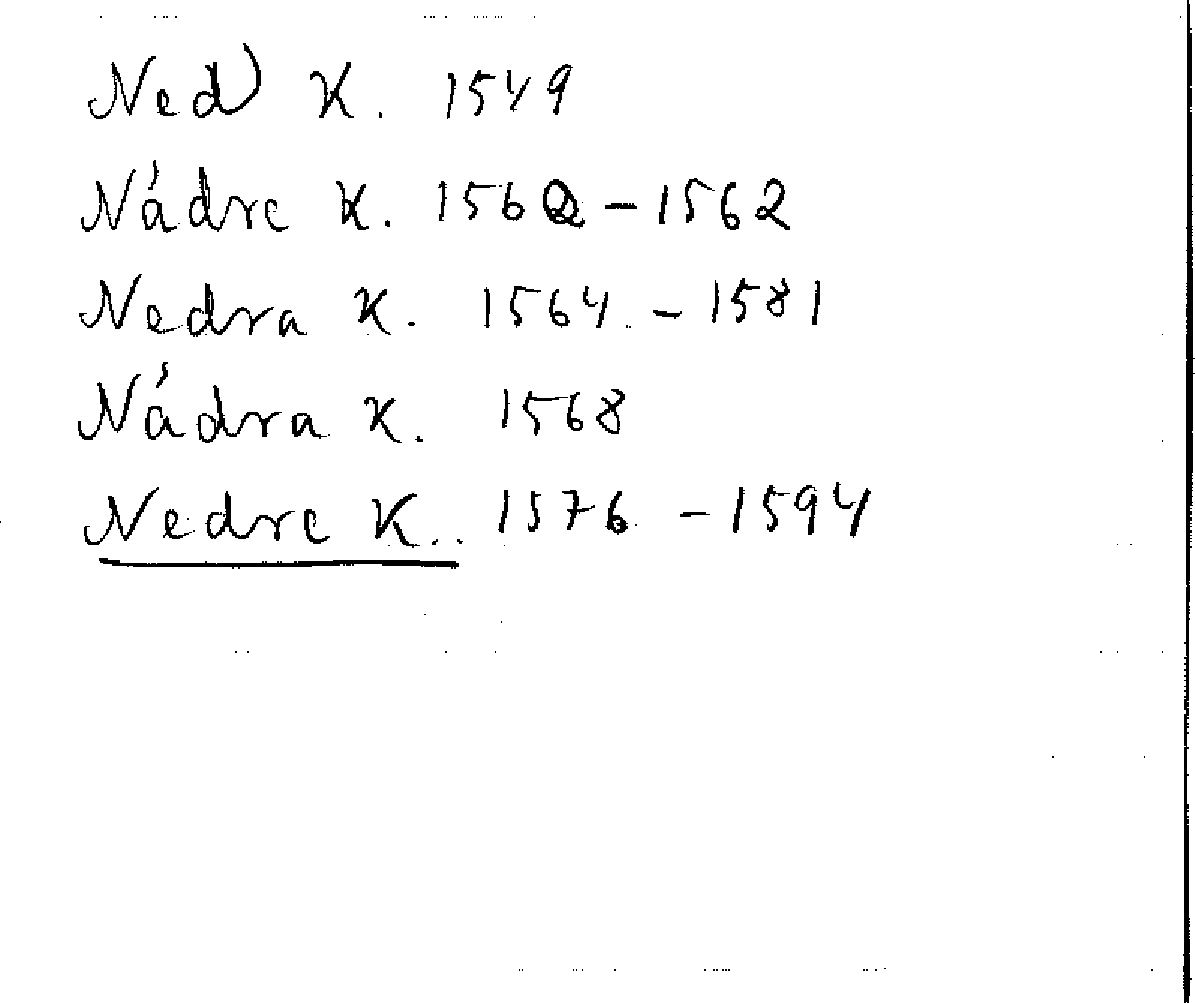 Ned) K. 1549
Nádre K. 1562 – 1562
Nedra K. 1564. – 1581
Nádra K. 1568
Nedre K.. 1576 – 1594